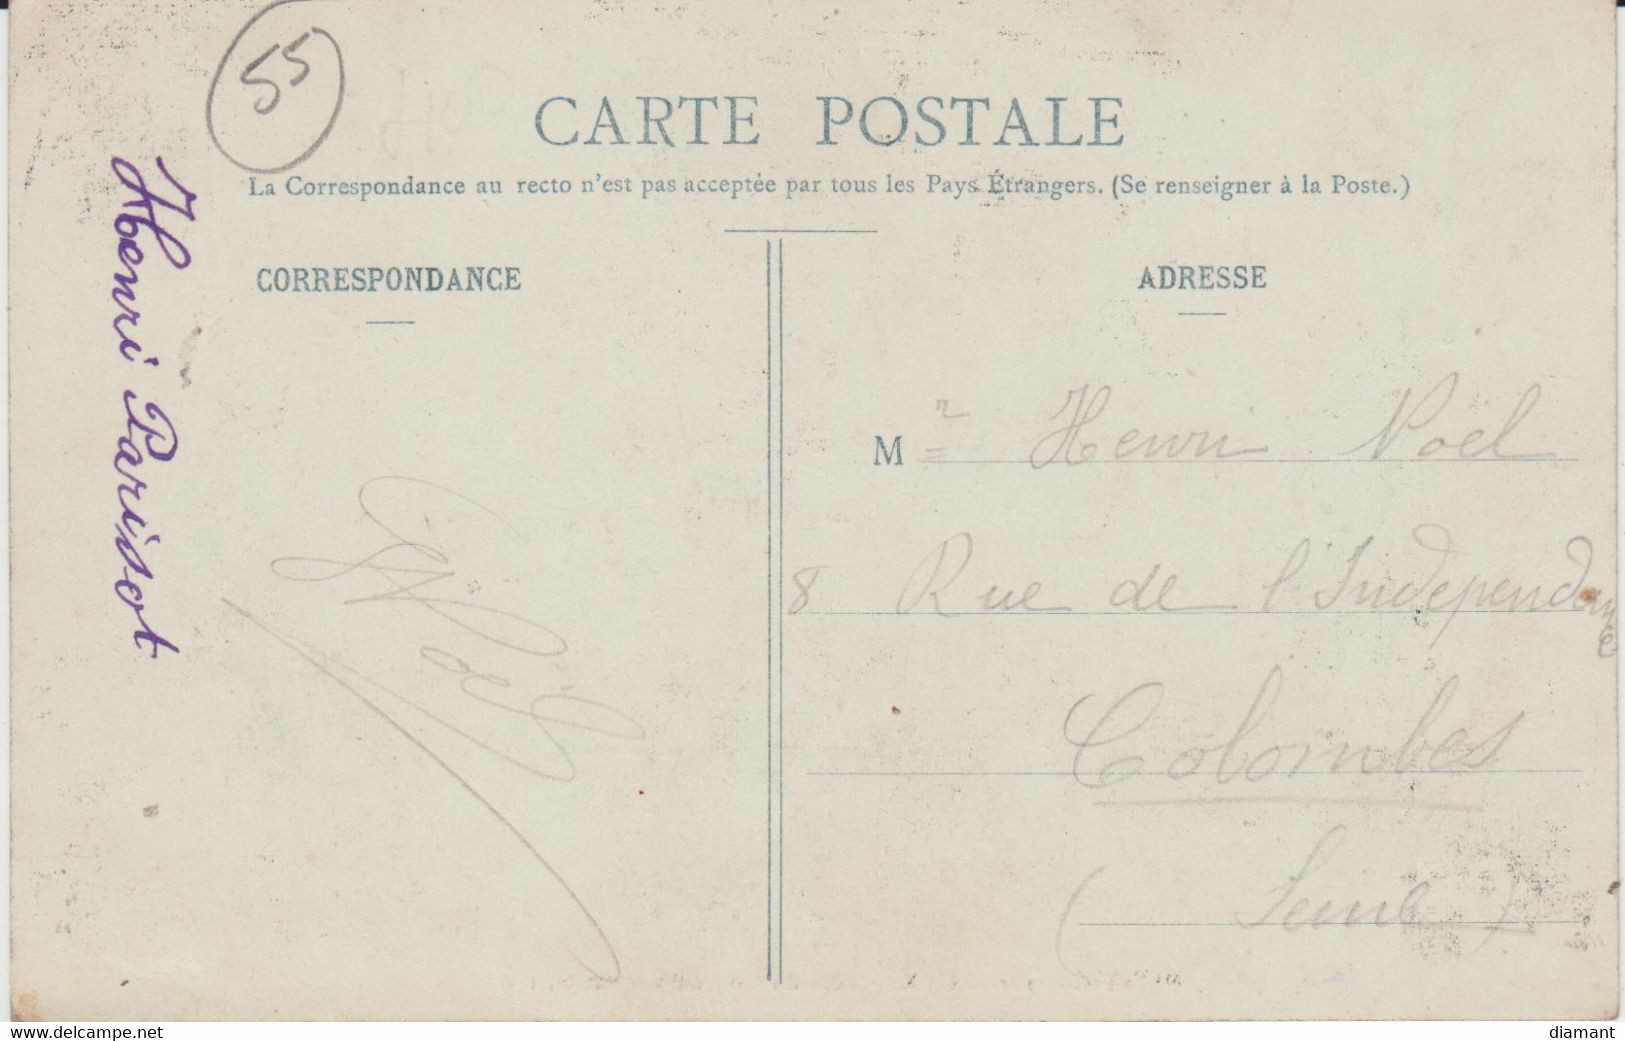 55
CARTE POSTALE
La Correspondance au recto n'est pas acceptée par tous les Pays Étrangers. (Se renseigner à la Poste.)
CORRESPONDANCE
Henri Parisot
Noël
ADRESSE
Mr Henri Noël
8 Rue de l'Independance
Colombes
(Seine)
www.delcampe.net
diamant